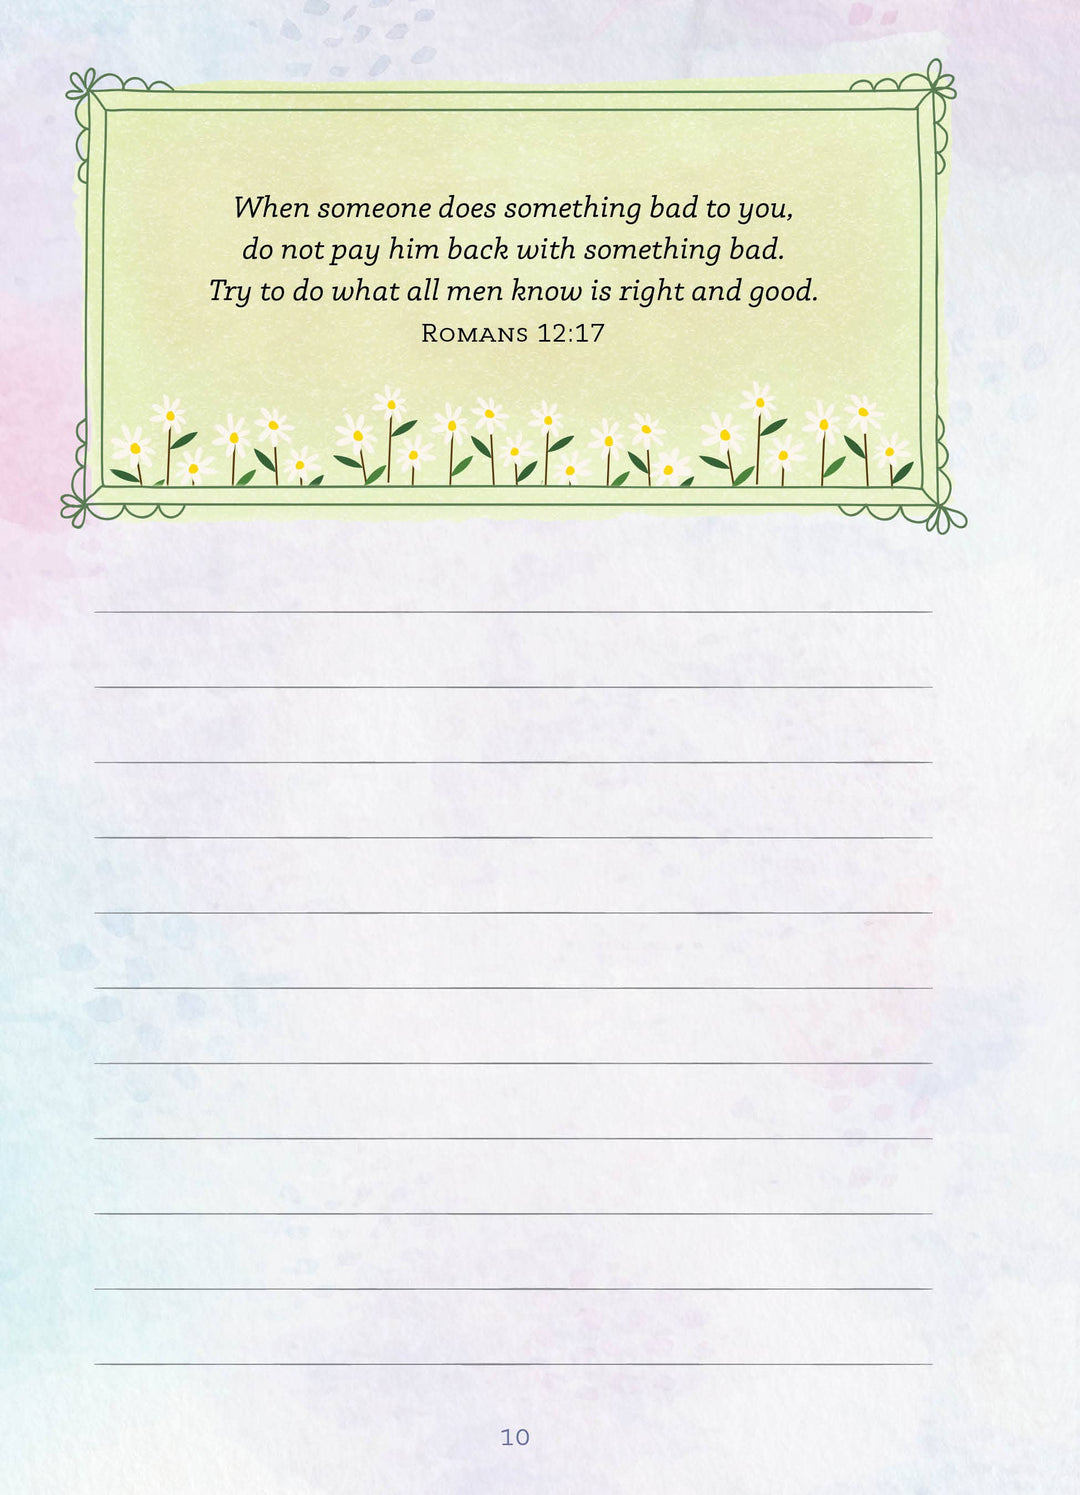 When someone does something bad to you,
do not pay him back with something bad.
Try to do what all men know is right and good.
Romans 12:17
10